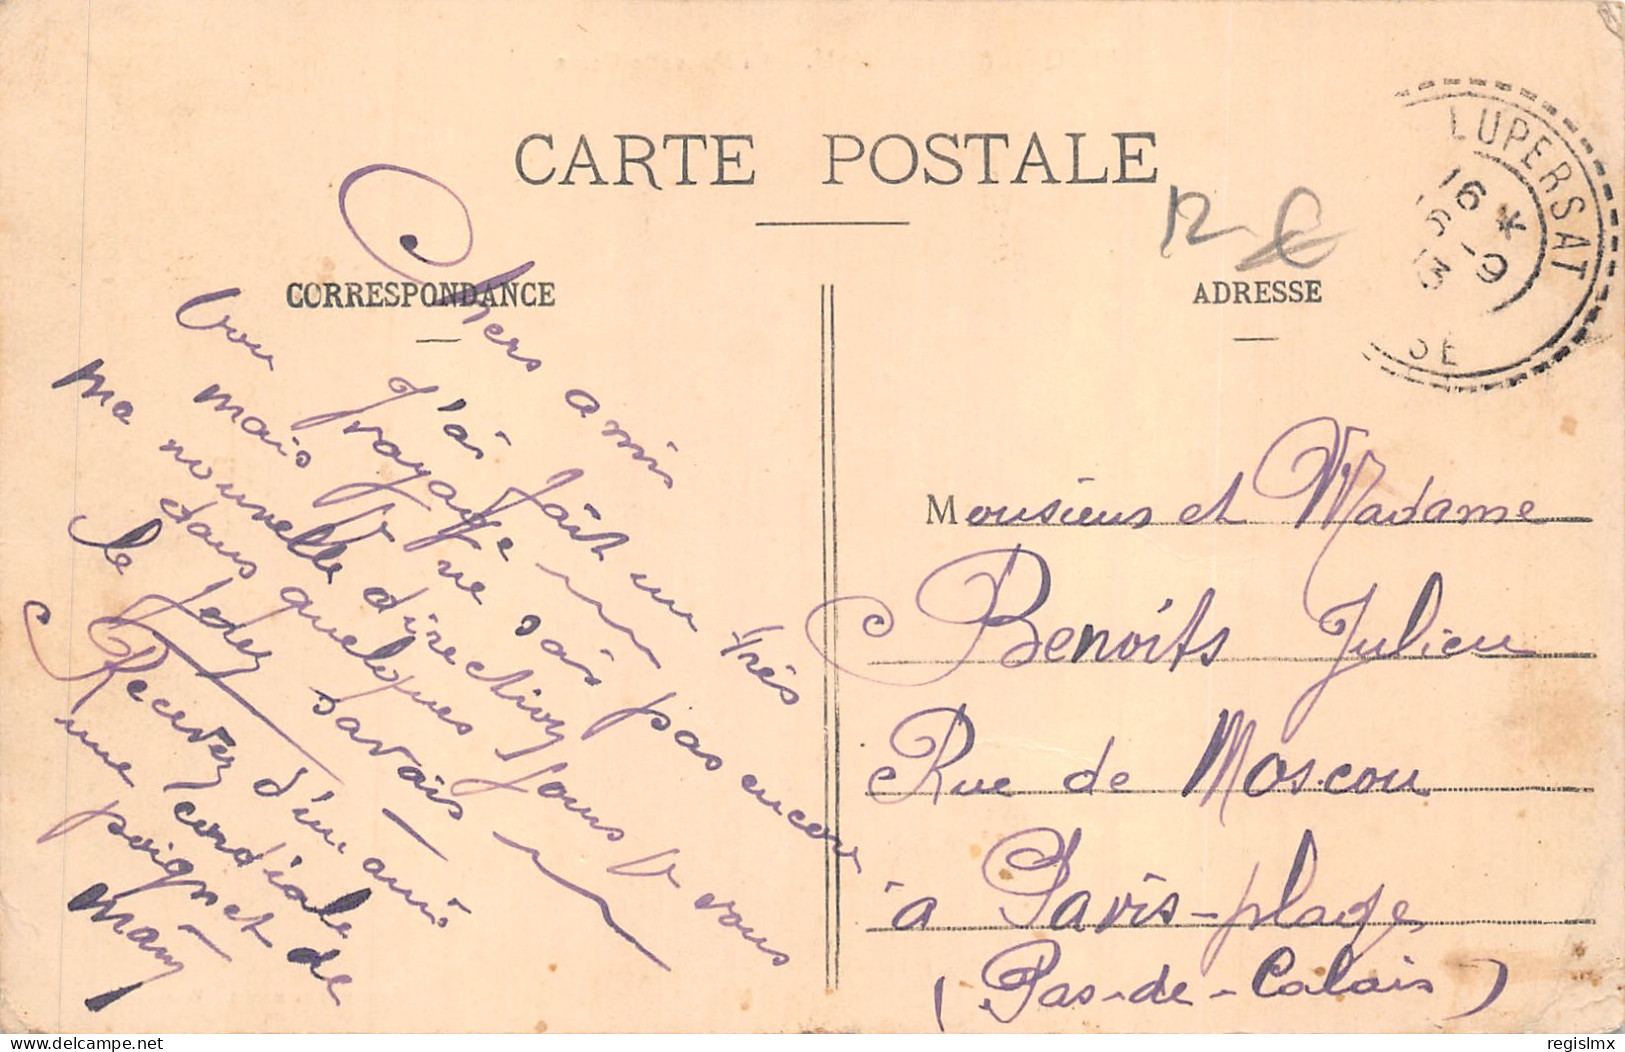 CARTE POSTALE
CORRESPONDANCE
Chers amis
J'ai fait un très
bon voyage
mais je ne sais pas encore
ma nouvelle direction
dans quelques jours vous
le savais
Recevez d'un ami
une cordiale
poignet de
main
12-
ADRESSE
LUPERSAT
16 *
6-9
13
SE
Monsieurs et Madame
Benoits Julien
Rue de Moscou
a Paris-plage
(Pas-de-Calais)
www.delcampe.net
regislmx